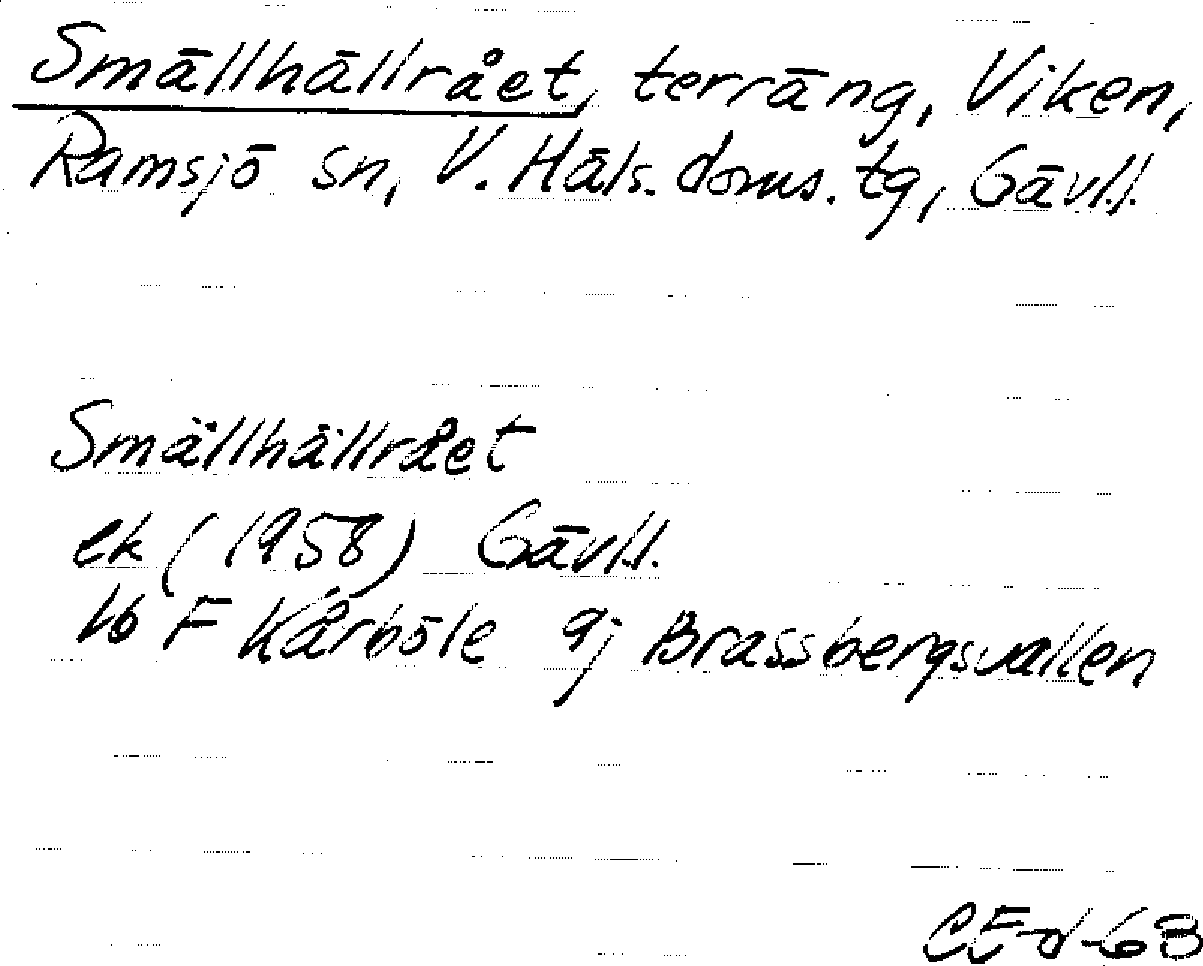 Smällhällrået, terräng, Viken,
Ramsjö sn, V. Häls. doms. tg, Gävl.l.
Smällhällrået
ek (1958) Gävl.l.
16 F Kårböle 9j Brassbergsvallen
CE-d-63